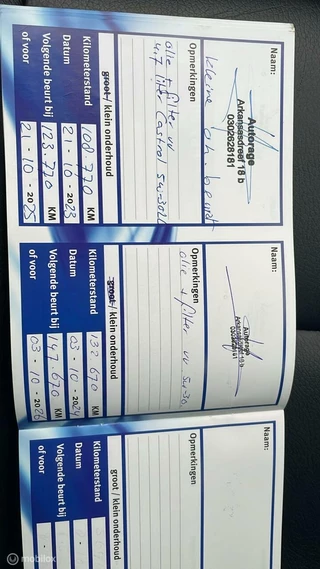 Naam:
Autorage
Arkansasdreef 18 b
0302628181
kleine o.h. beurt
Opmerkingen
olie + filter vv
4.7 liter Castrol 5w-30LL
groot / klein onderhoud
Kilometerstand 108.770 KM
Datum 21 - 10 - 2023
Volgende beurt bij 123.770 KM
of voor 21 - 10 - 2025
Naam:
Autorage
Arkansasdreef 18 b
0302628181
Opmerkingen
olie + filter vv 5w-30
groot / klein onderhoud
Kilometerstand 132 670 KM
Datum 03 - 10 - 2024
Volgende beurt bij 147.670 KM
of voor 03 - 10 - 2026
Naam:
Opmerkingen
groot / klein onderhoud
Kilometerstand
Datum
Volgende beurt bij
of voor
mobilox